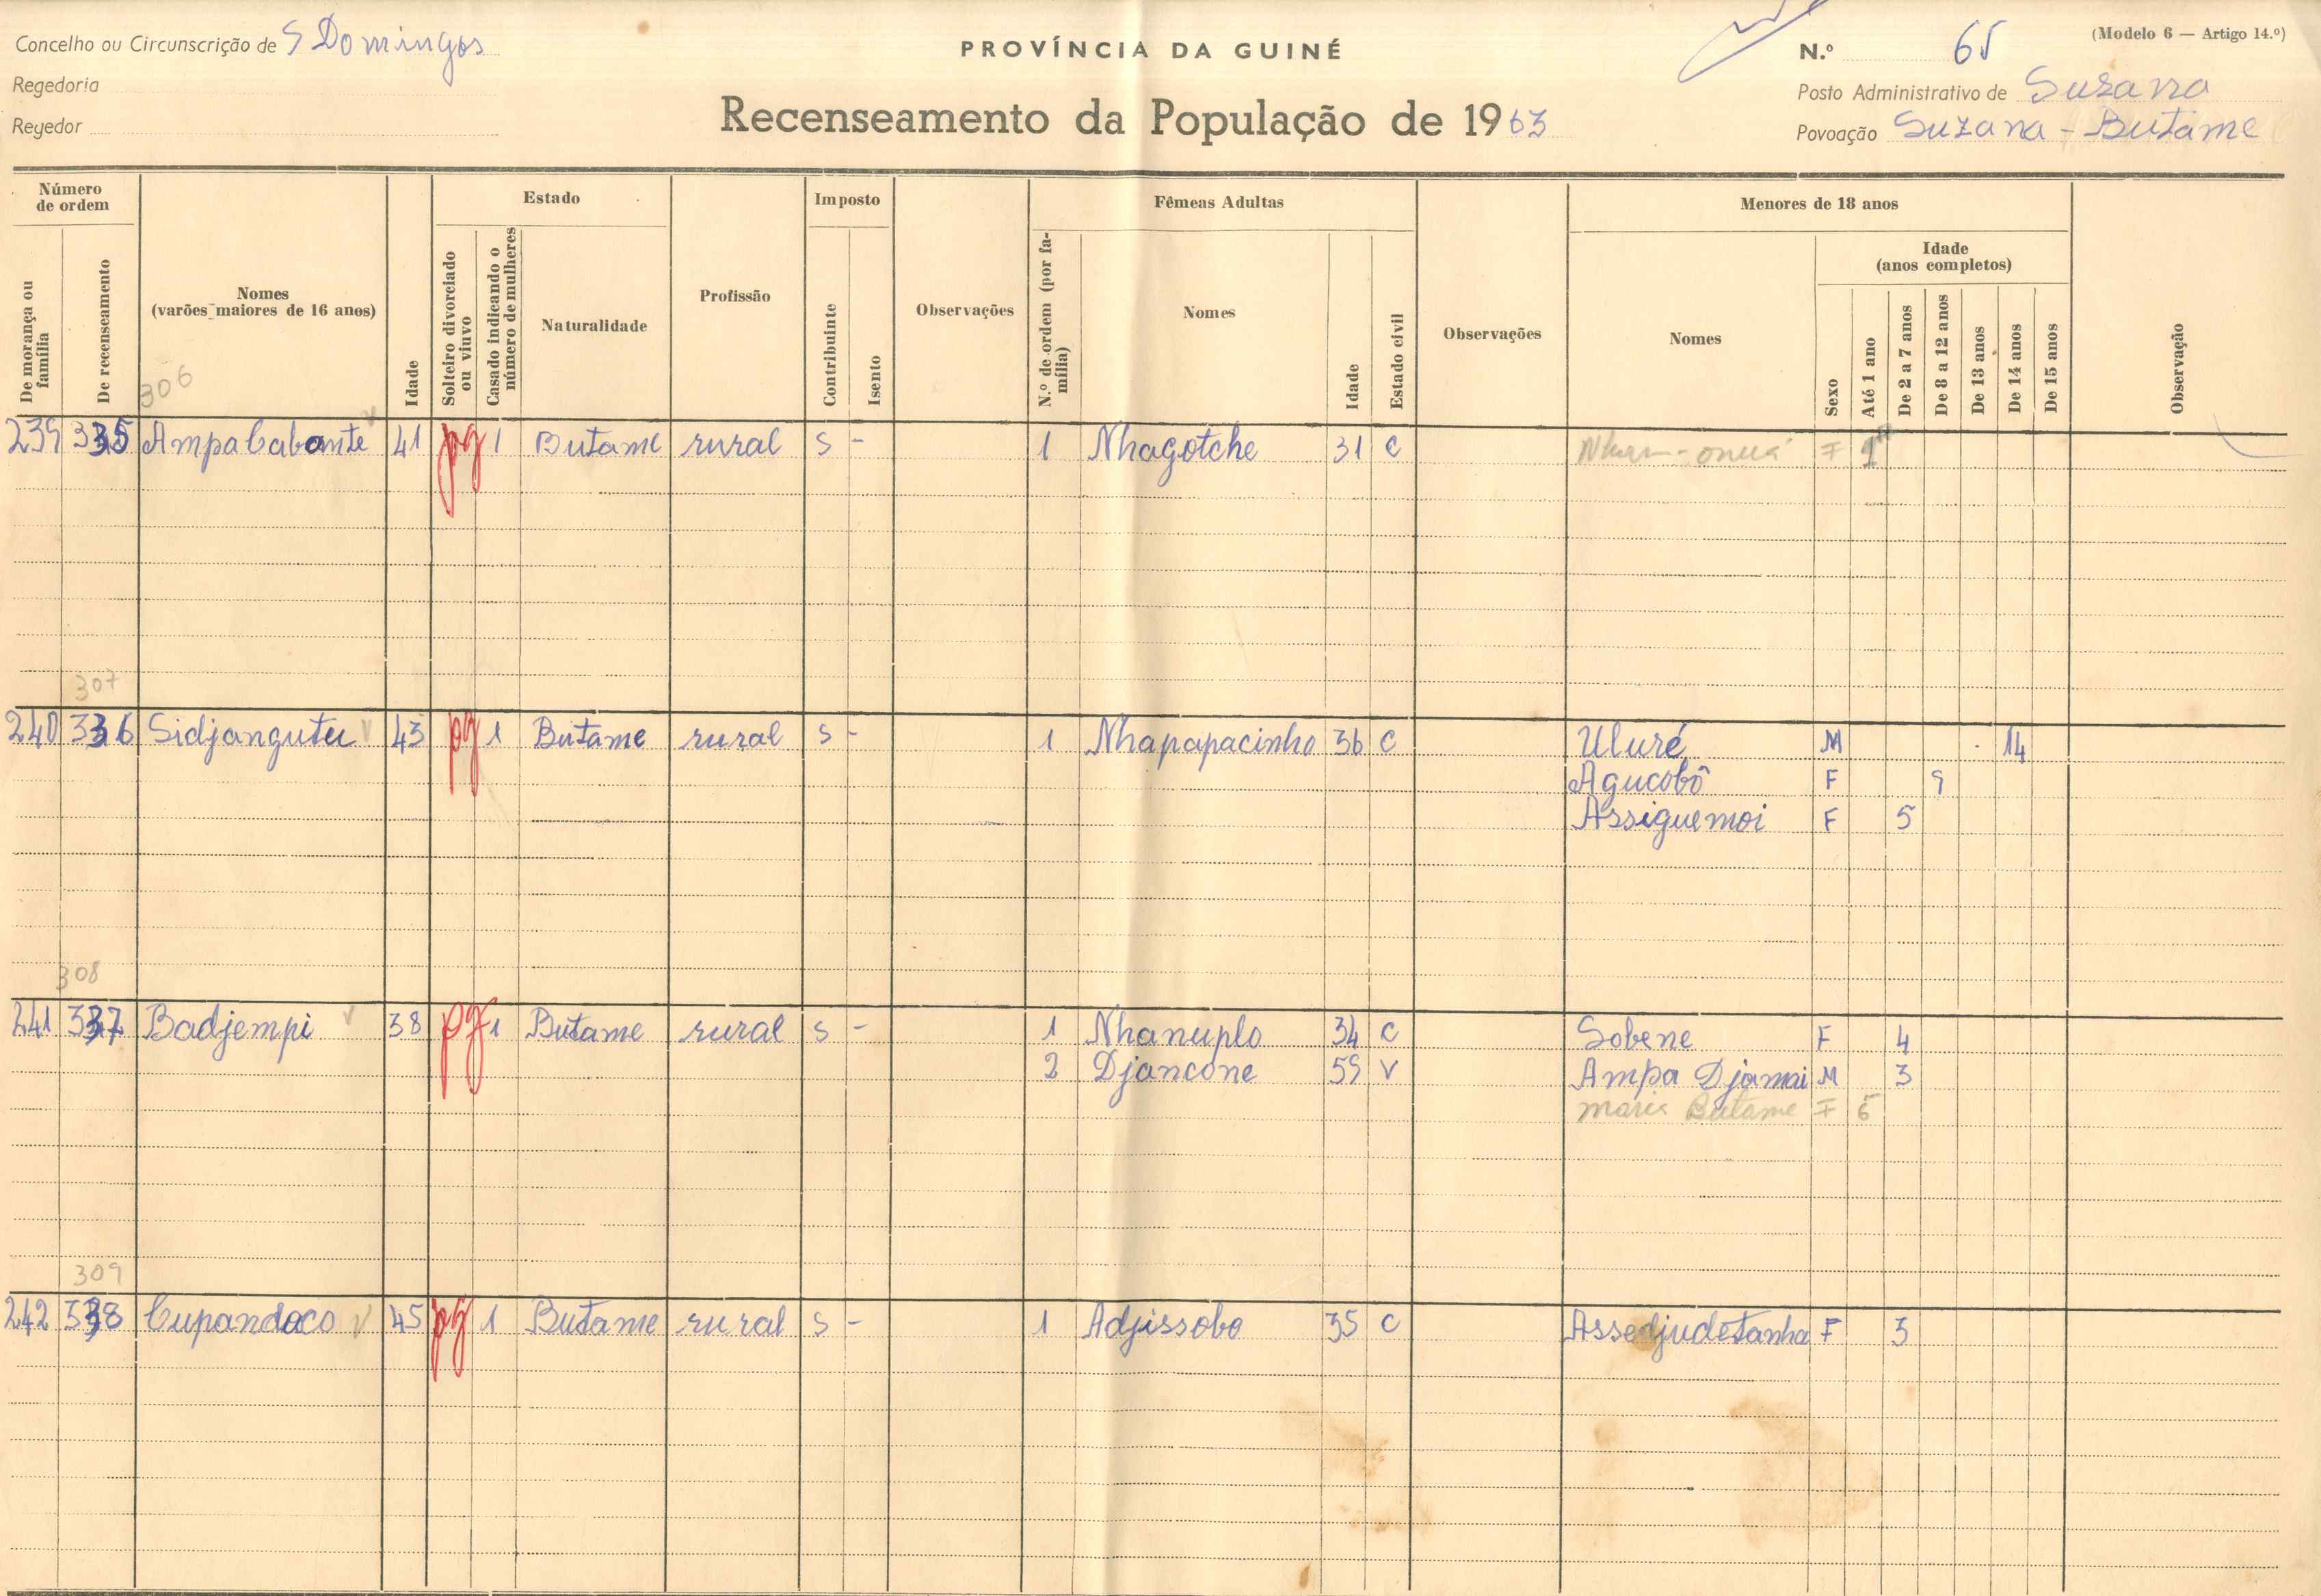 Concelho ou Circunscrição de S Domingos
Regedoria
Regedor
PROVÍNCIA DA GUINÉ
Recenseamento da População de 1963
(Modelo 6 — Artigo 14.º)
N.º 65
Posto Administrativo de Suzana
Povoação Suzana - Butame
Número de ordem
De morança ou família
De recenseamento
Nomes
(varões maiores de 16 anos)
Idade
Estado
Solteiro divorciado ou viuvo
Casado indicando o número de mulheres
Naturalidade
Profissão
Imposto
Contribuinte
Isento
Observações
Fêmeas Adultas
N.º de ordem (por família)
Nomes
Idade
Estado civil
Observações
Menores de 18 anos
Nomes
Sexo
Idade
(anos completos)
Até 1 ano
De 2 a 7 anos
De 8 a 12 anos
De 13 anos
De 14 anos
De 15 anos
Observação
306
239 335 Ampacabante 41 pg 1 Butame rural S - 1 Nhagotche 31 C F
307
240 336 Sidjangutu 43 pg 1 Butame rural S - 1 Nhapapacinho 36 C Uluré M 14
Agucobô F 9
Assiguemoi F 5
308
241 337 Badjempi 38 pg 1 Butame rural S - 1 Nhanuplo 34 C Sobene F 4
2 Djancone 59 V Ampa Djamai M 3
maria Butame F 5
309
242 338 Cupandoco 45 pg 1 Butame rural S - 1 Adjissobo 35 C Assedjudetanha F 3